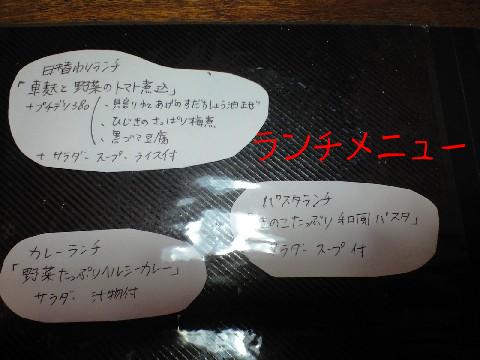 日替わりランチ
「車麩と野菜のトマト煮込」
+プチデリ3品
・貝割りれとあげのすだちしょう油まぜ
・ひじきのさっぱり梅煮
・黒ゴマ豆腐
+ サラダ・スープ・ライス付
ランチメニュー
パスタランチ
きのこたっぷり和風パスタ」
サラダ・スープ付
カレーランチ
「野菜たっぷりヘルシーカレー」
サラダ・汁物付